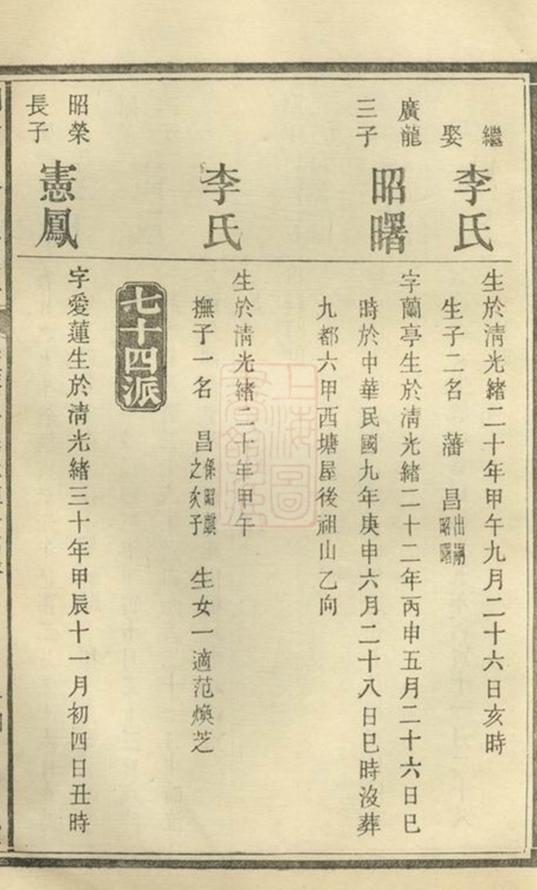 繼娶 李氏 生於淸光緖二十年甲午九月二十六日亥時
生子二名 藩 昌出嗣昭曙
廣龍三子 昭曙 字蘭亭生於淸光緖二十二年丙申五月二十六日巳
時於中華民國九年庚申六月二十八日巳時沒葬
九都六甲西塘屋後祖山乙向
李氏 生於淸光緖二十年甲午
撫子一名 昌係昭麒之次子 生女一適范煥芝
七十四派
昭榮長子 憲鳳 字愛蓮生於淸光緖三十年甲辰十一月初四日丑時